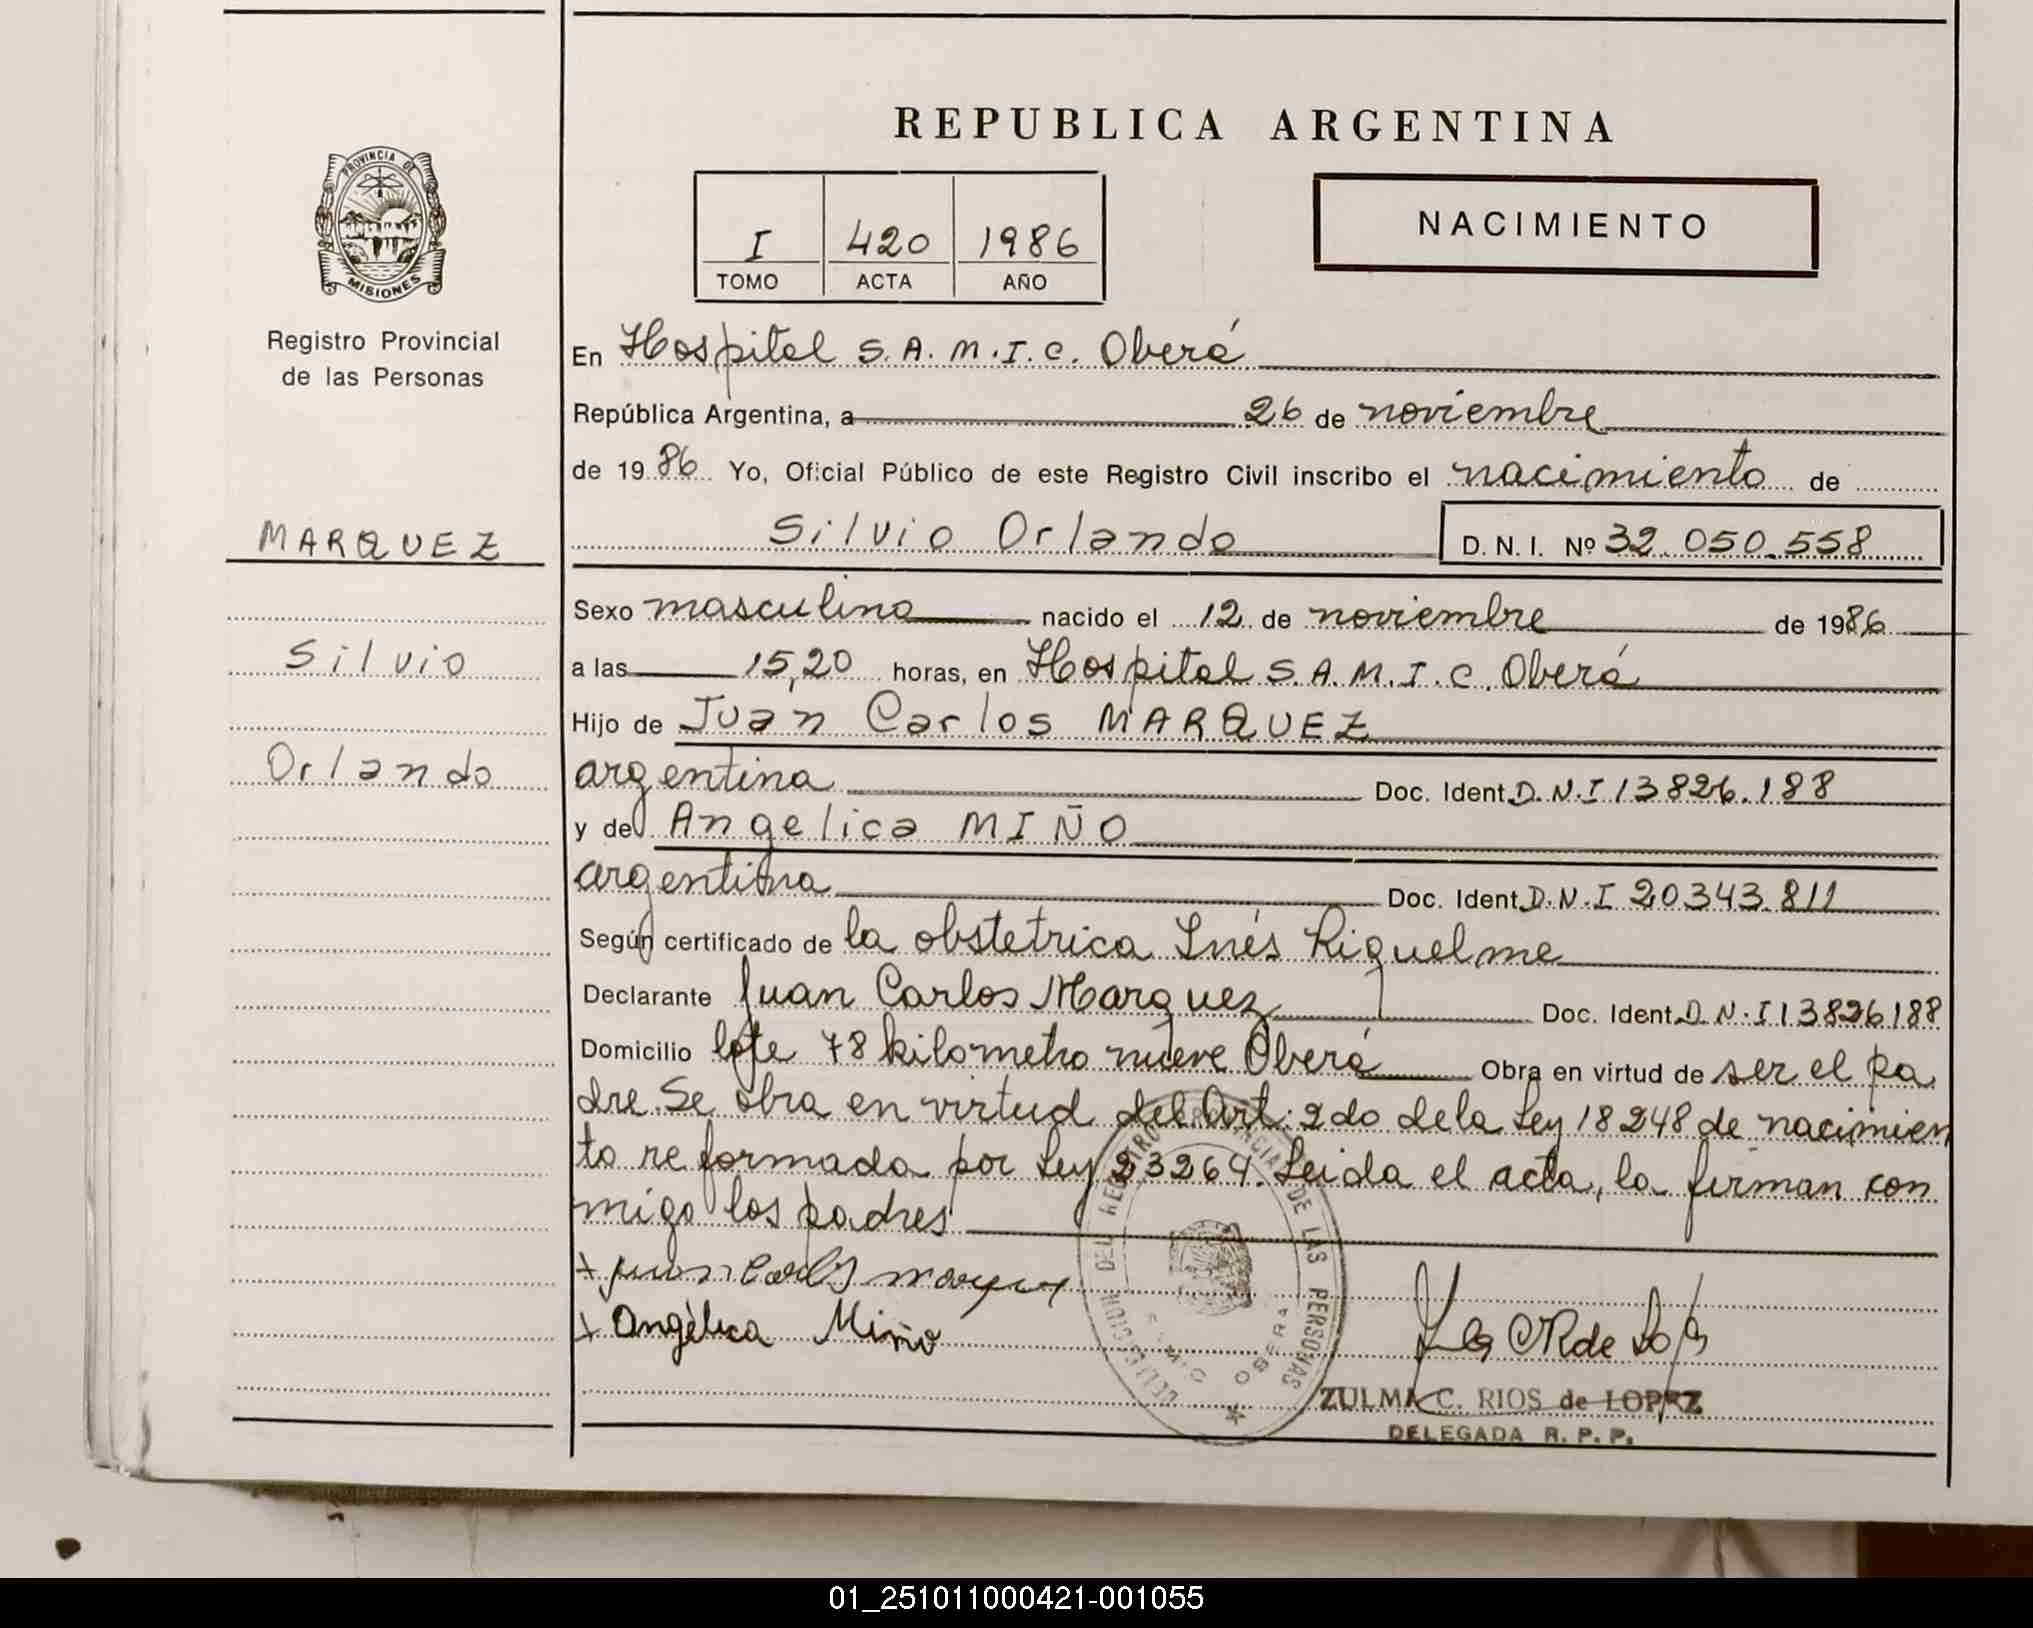 REPUBLICA ARGENTINA
PROVINCIA DE
MISIONES
Registro Provincial
de las Personas
I 420 1986
TOMO ACTA AÑO
NACIMIENTO
En Hospital S.A.M.I.C. Oberá
República Argentina, a 26 de noviembre
de 1986 Yo, Oficial Público de este Registro Civil inscribo el nacimiento de
MARQUEZ
Silvio
Orlando
Silvio Orlando D. N. I. Nº 32.050.558
Sexo masculino nacido el 12 de noviembre de 1986
a las 15,20 horas, en Hospital S.A.M.I.C. Oberá
Hijo de Juan Carlos MARQUEZ
argentina Doc. Ident. D.N.I 13826.188
y de Angelica MIÑO
argentina Doc. Ident. D.N.I 20343.811
Según certificado de la obstetrica Inés Riquelme
Declarante Juan Carlos Marquez Doc. Ident. D.N.I 13826188
Domicilio lote 78 kilometro nueve Oberá Obra en virtud de ser el pa
dre. Se obra en virtud del Art: 2do de la Ley 18248 de nacimien
to reformada por Ley 23264. Leida el acta, la firman con
migo los padres
+ Juan Carlos Marquez
+ Angélica Miño
DELEGACION DEL REGISTRO PROVINCIAL DE LAS PERSONAS
OBERA
ZULMA C. RIOS de LOPEZ
DELEGADA R. P. P.
01_251011000421-001055